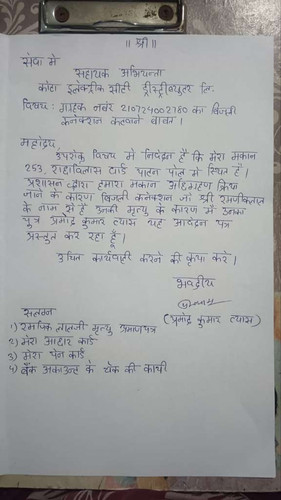 ॥ श्री ॥
सेवा में
सहायक अभियन्ता
कोटा इलेक्ट्रीक सीटी डीस्ट्रीब्युटर लि.
विषय : ग्राहक नंबर 210724002780 का बिजली
कनेक्शन कटवाने बाबत ।
महोदय,
उपरोक्त विषय में निवेदन है कि मेरा मकान
253, राधाविलास पाटन पोल में स्थित है ।
प्रशासन द्वारा हमारा मकान अधिग्रहण किया
जाने के कारण बिजली कनेक्शन जो श्री
के नाम से है उनकी मृत्यु के कारण में उनका
पुत्र प्रमोद कुमार व्यास यह आवेदन पत्र
प्रस्तुत कर रहा हूँ ।
उचित कार्यवाही करने की कृपा करें ।
भवदीय
(प्रमोद कुमार व्यास)
सलग्न
1) लालजी मृत्यु प्रमाणपत्र
2) मेरा आधार कार्ड
3) मेरा पेन कार्ड
4) बैंक अकाउन्ट के चेक की कापी